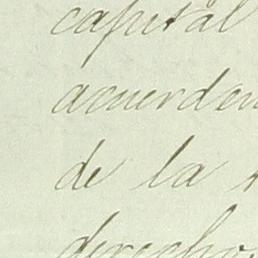 capital
acuerden
de la
derecho